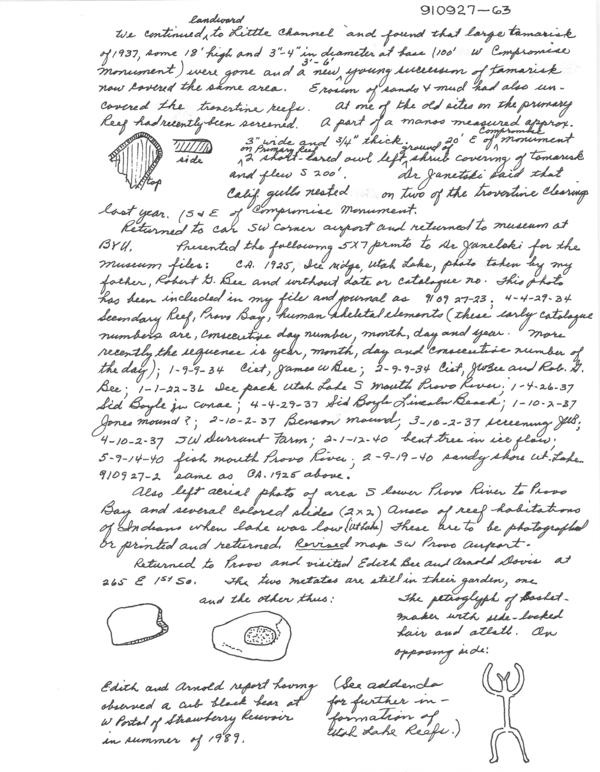 910927-63
We continued landward to Little Channel and found that large tamarisk
of 1937, some 18' high and 3"-4" in diameter at base (100' W Compromise
monument) were gone and a new 3'-6' young succession of tamarisk
now covered the same area. Erosion of sands & mud had also un-
covered the travertine reefs. At one of the old sites on the primary
Reef had recently been screened. A part of a manos measured approx.
3" wide and 3/4" thick. 20' E of Compromise monument
on Primary Reef 2 short-eared owl left ground of shrub covering of tamarisk
and flew S 200'. Dr Janetski said that
Calif. gulls nested on two of the travertine clearings
side
top
last year. (S & E of Compromise Monument.
Returned to car SW corner airport and returned to museum at
BYU. Presented the following 5X7 prints to Dr Janetski for the
museum files: CA. 1925, Ice ridge, Utah Lake, photo taken by my
father, Robert G. Bee and without date or catalogue no. This photo
has been included in my file and journal as 910927-23; 4-4-29-34
Secondary Reef, Provo Bay, human skeletal elements (these early catalogue
numbers are, consecutive day number, month, day and year. More
recently the sequense is year, month, day and consecutive number of
the day); 1-9-9-34 Cist, James W Bee; 2-9-9-34 Cist, JWBee and Rob. G.
Bee; 1-1-22-36 Ice pack Utah Lake S mouth Provo River; 1-4-26-37
Sid Boyle in canoe; 4-4-29-37 Sid Boyle Lincoln Beach; 1-10-2-37
Jones mound?; 2-10-2-37 Benson mound; 3-10-2-37 screening JWB;
4-10-2-37 JW Durrant Farm; 2-1-12-40 bent tree in ice flow.
5-9-14-40 fish mouth Provo River; 2-9-19-40 sandy shore Ut. Lake.
910927-2 same as CA. 1925 above.
Also left aerial photo of area S lower Provo River to Provo
Bay and several colored slides (2x2) Anses of reef habitations
of Indians when lake was low (Ut Lake) These are to be photographed
or printed and returned. Revised map SW Provo Airport.
Returned to Provo and visited Edith Bee and Arnold Davis at
265 E 1st So. The two metates are still in their garden, one
and the other thus: The petroglyph of Basket-
maker with side-locked
hair and atlatl. On
opposing side:
Edith and Arnold report having
observed a cub black bear at
W Portal of Strawberry Resevoir
in summer of 1989.
(See addenda
for further in-
formation of
Utah Lake Reefs.)